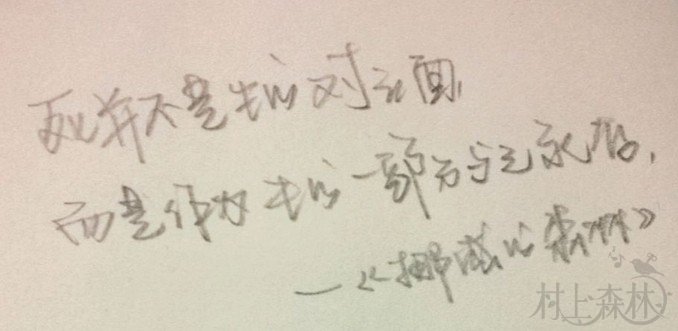 死并不是生的对立面，
而是作为生的一部分与之永存。
—《挪威的森林》
村上森林